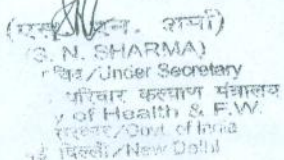 (एस. एन. शर्मा)
(S. N. SHARMA)
/Under Secretary
परिवार कल्याण मंत्रालय
y of Health & F.W.
/Govt. of India
दिल्ली/New Delhi